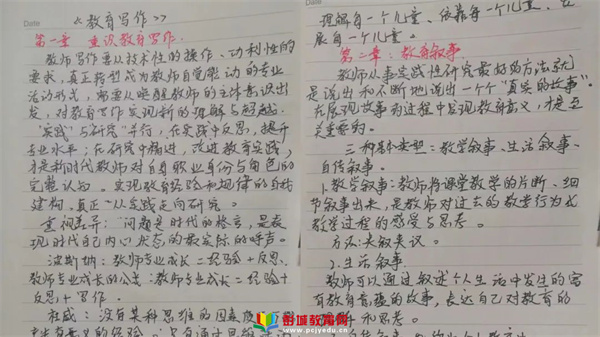 Date
《教育写作》
第一章 重识教育写作.
教师写作要从技术性的操作、功利性的
要求,真正转型成为教师自觉驱动的专业
活动形式,需要从唤醒教师的主体意识出
发,对教育写作实现新的理解与
"实践"与"研究"并行,在实践中反思,提升
专业水平;在研究中精进,改进教育实践,
才是新时代教师对自身职业身份与角色的
完整认知。实现教育经验和规律的自我
建构,真正"从实践走向研究。
重视差异:"问题是时代的格言,是表
现时代自己内心状态的最实际的呼声。
波斯纳:教师专业成长=经验+反思、
教师专业成长的公式:教师专业成长=经验+
反思+写作.
杜威:没有某种思维的因素
理解每一个儿童、依靠每一个儿童、
展每一个儿童。
Date
第二章:教育叙事
教师从事实践性研究最好的方法就
是说出和不断地说出一个个"真实的故事"。
在展现故事的过程中发现教育意义,才是至
关重要的。
三种基本类型:教学叙事、生活叙事、
自传叙事。
1.教学叙事:教师将课堂教学的片断、细
节叙事出来,是教师对过去的教学行为及
教学过程的感受与思考。
方法:夹叙夹议。
2.生活叙事
教师可以通过叙述个人生活中发生的富
有教育意蕴的故事,表达自己对教育的
和思考。
射城教育网
www.pcjyedu.cn